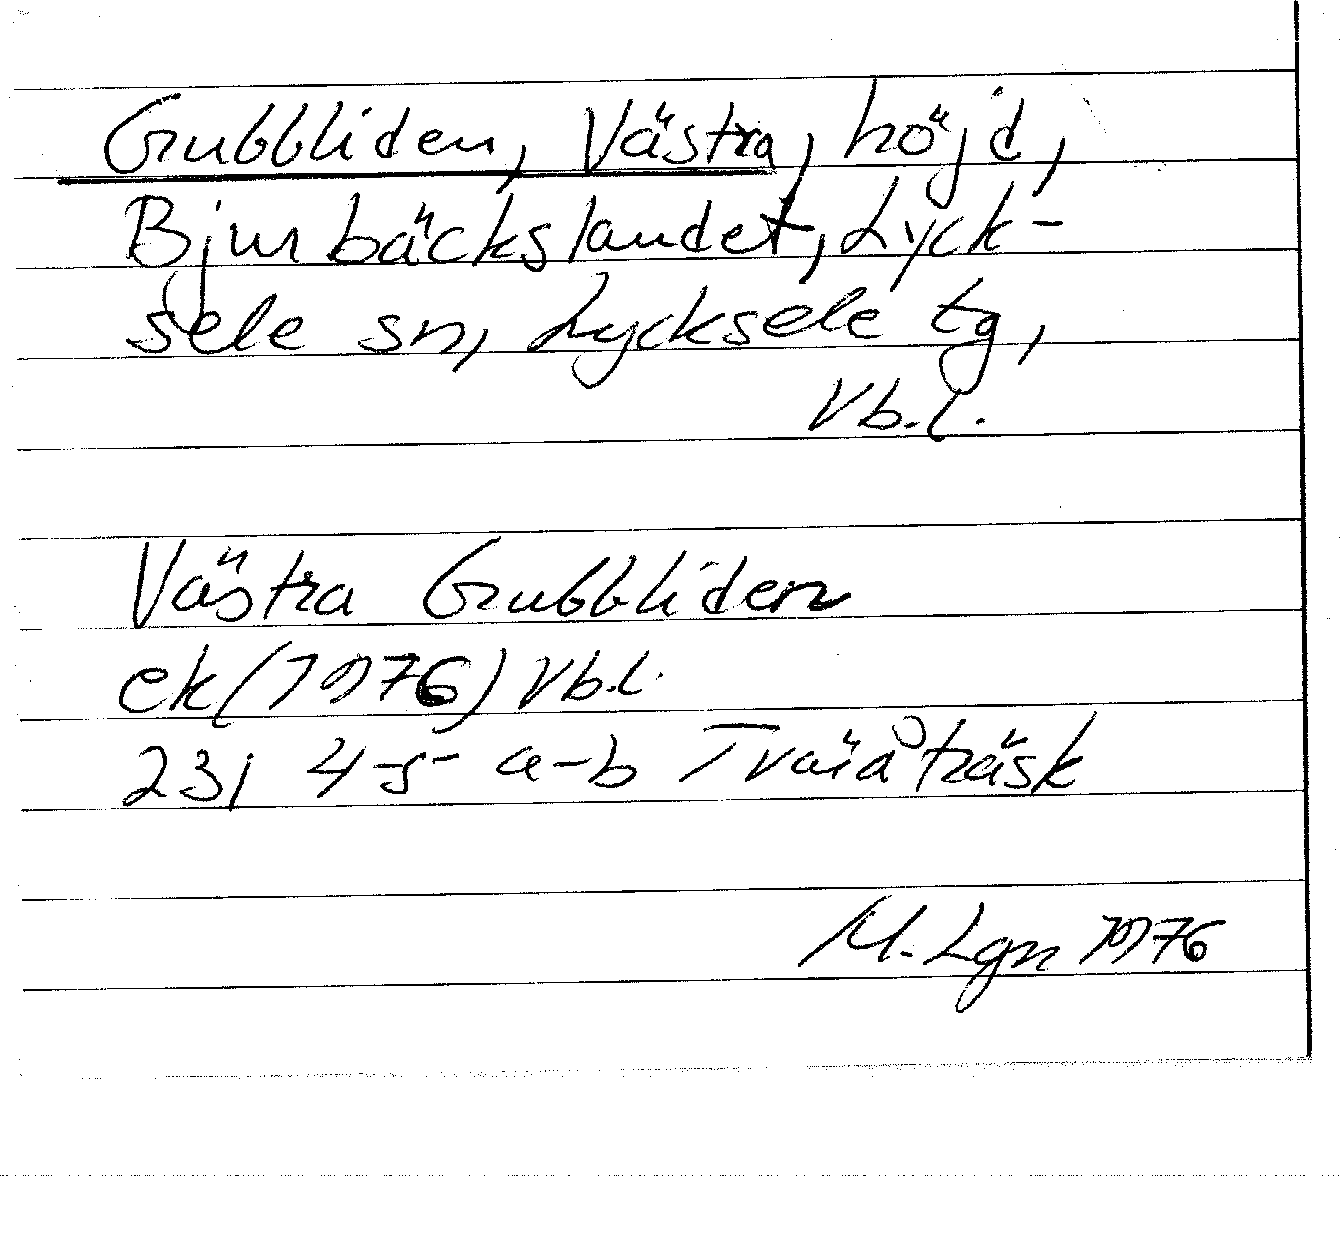 Grubbliden, Västra, höjd,
Bjurbäckslandet, Lyck-
sele sn, Lycksele tg,
Vb.l.
Västra Grubbliden
ek (1976) Vb.l.
23j 4-5 a-b Tväråträsk
M. Lgn 1976